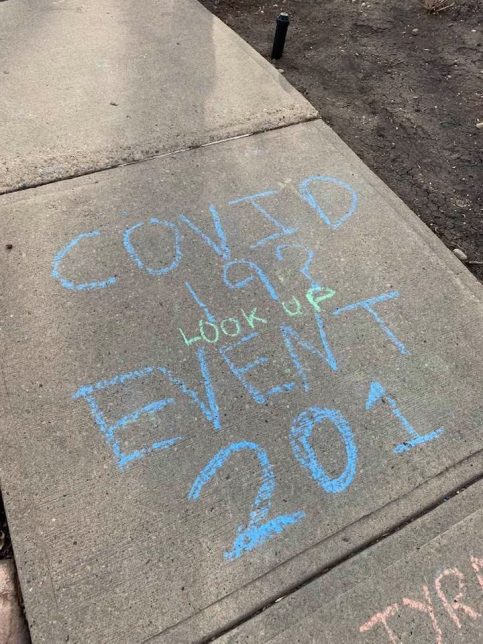 COVID
19?
LOOK UP
EVENT
201
TYR